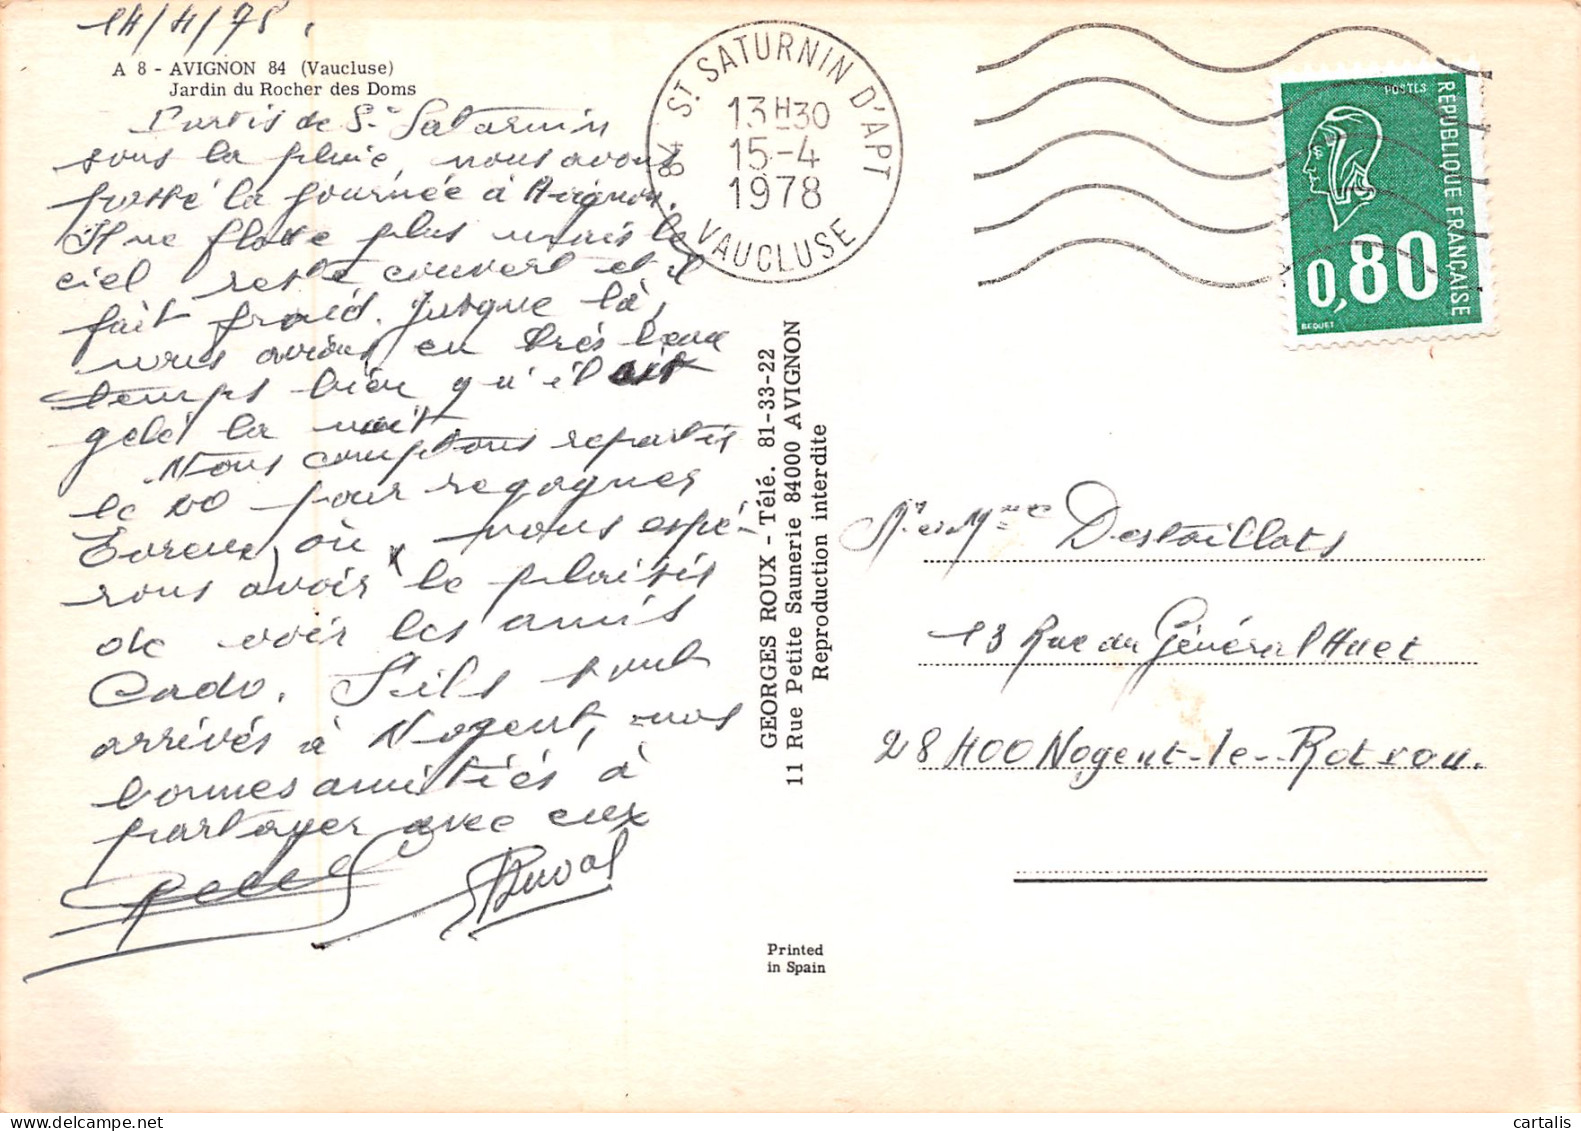 14/4/78.
A 8 - AVIGNON 84 (Vaucluse)
Jardin du Rocher des Doms
Partis de St Saturnin
sous la pluie, nous avons
passé la journée à Avignon.
Il ne flotte plus mais le
ciel reste couvert et il
fait froid. Jusque là,
nous avions eu très beau
temps bien qu'il ait
gelé la nuit.
Nous comptons repartir
le 20 pour regagner
Evreux, où nous espé-
rons avoir le plaisir
de voir les amis
Cado. S'ils sont
arrivés à Nogent, nos
bonnes amitiés à
partager avec eux
Duval
84 ST SATURNIN D'APT
13H30
15-4
1978
VAUCLUSE
POSTES
REPUBLIQUE FRANÇAISE
0,80
BEQUET
GEORGES ROUX - Télé. 81-33-22
11 Rue Petite Saunerie 84000 AVIGNON
Reproduction interdite
Mr et Mme Destaillats
13 Rue du Général Huet
28400 Nogent-le-Rotrou.
Printed
in Spain
cartalis